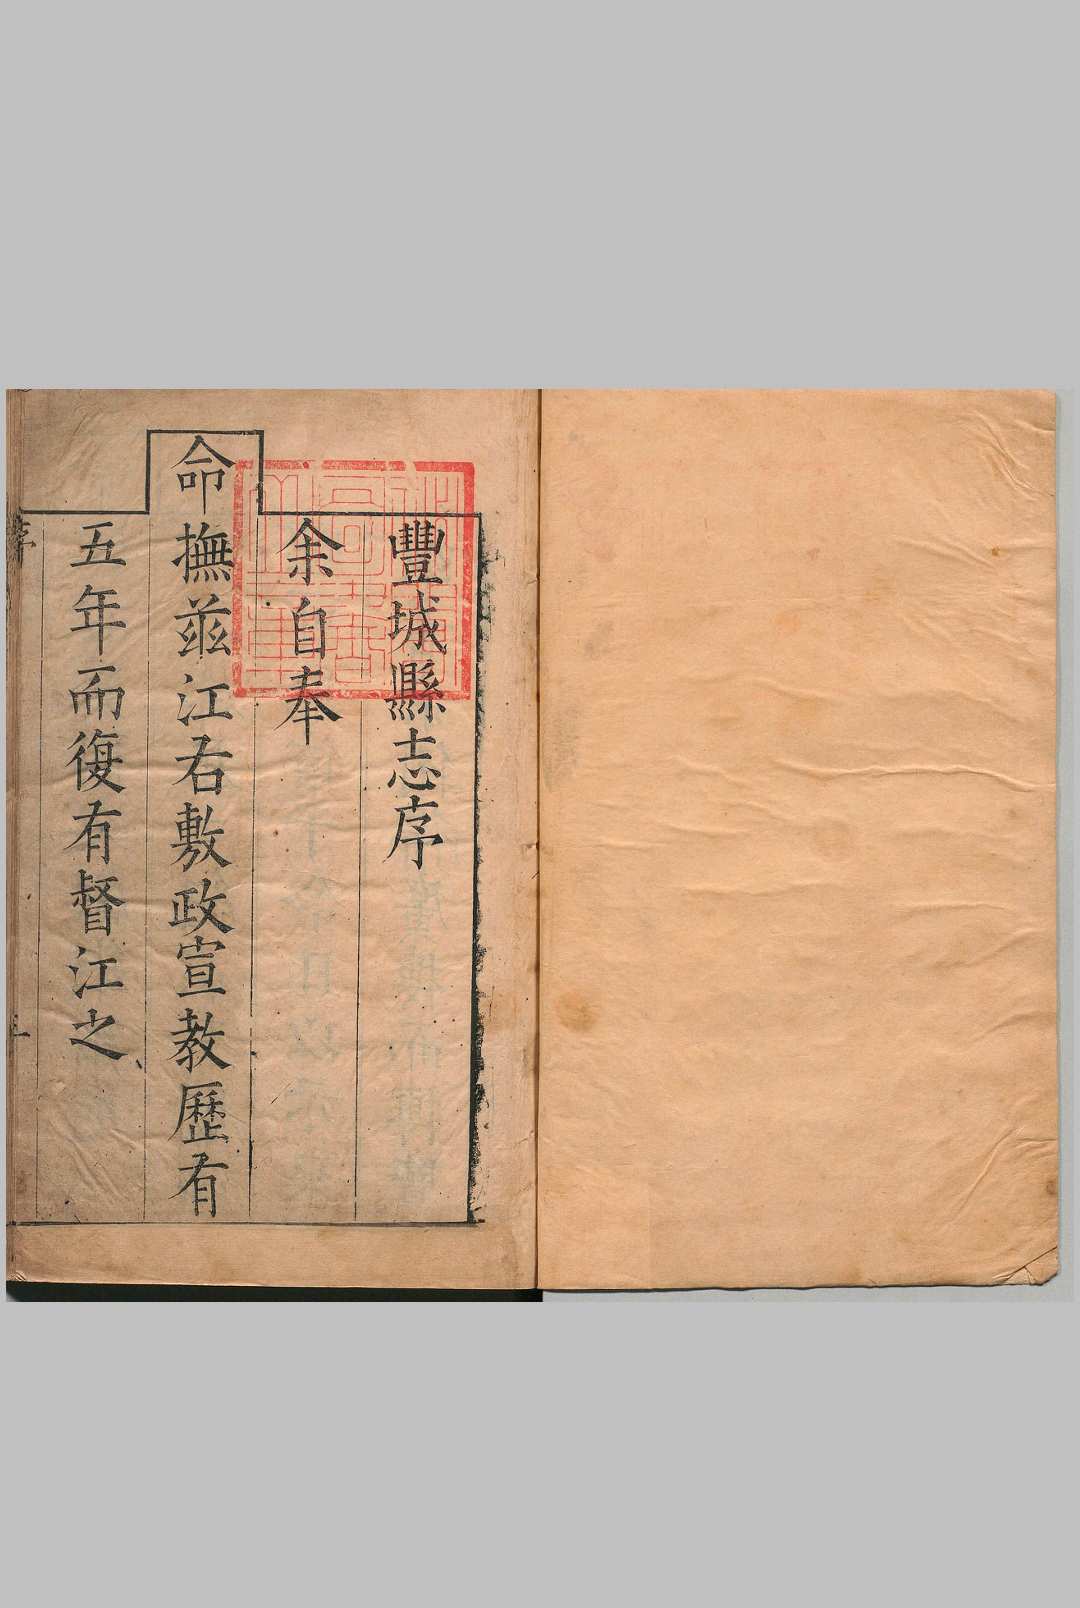 豐城縣志序
余自奉
命撫兹江右敷政宣教歷有
五年而復有督江之
序
一